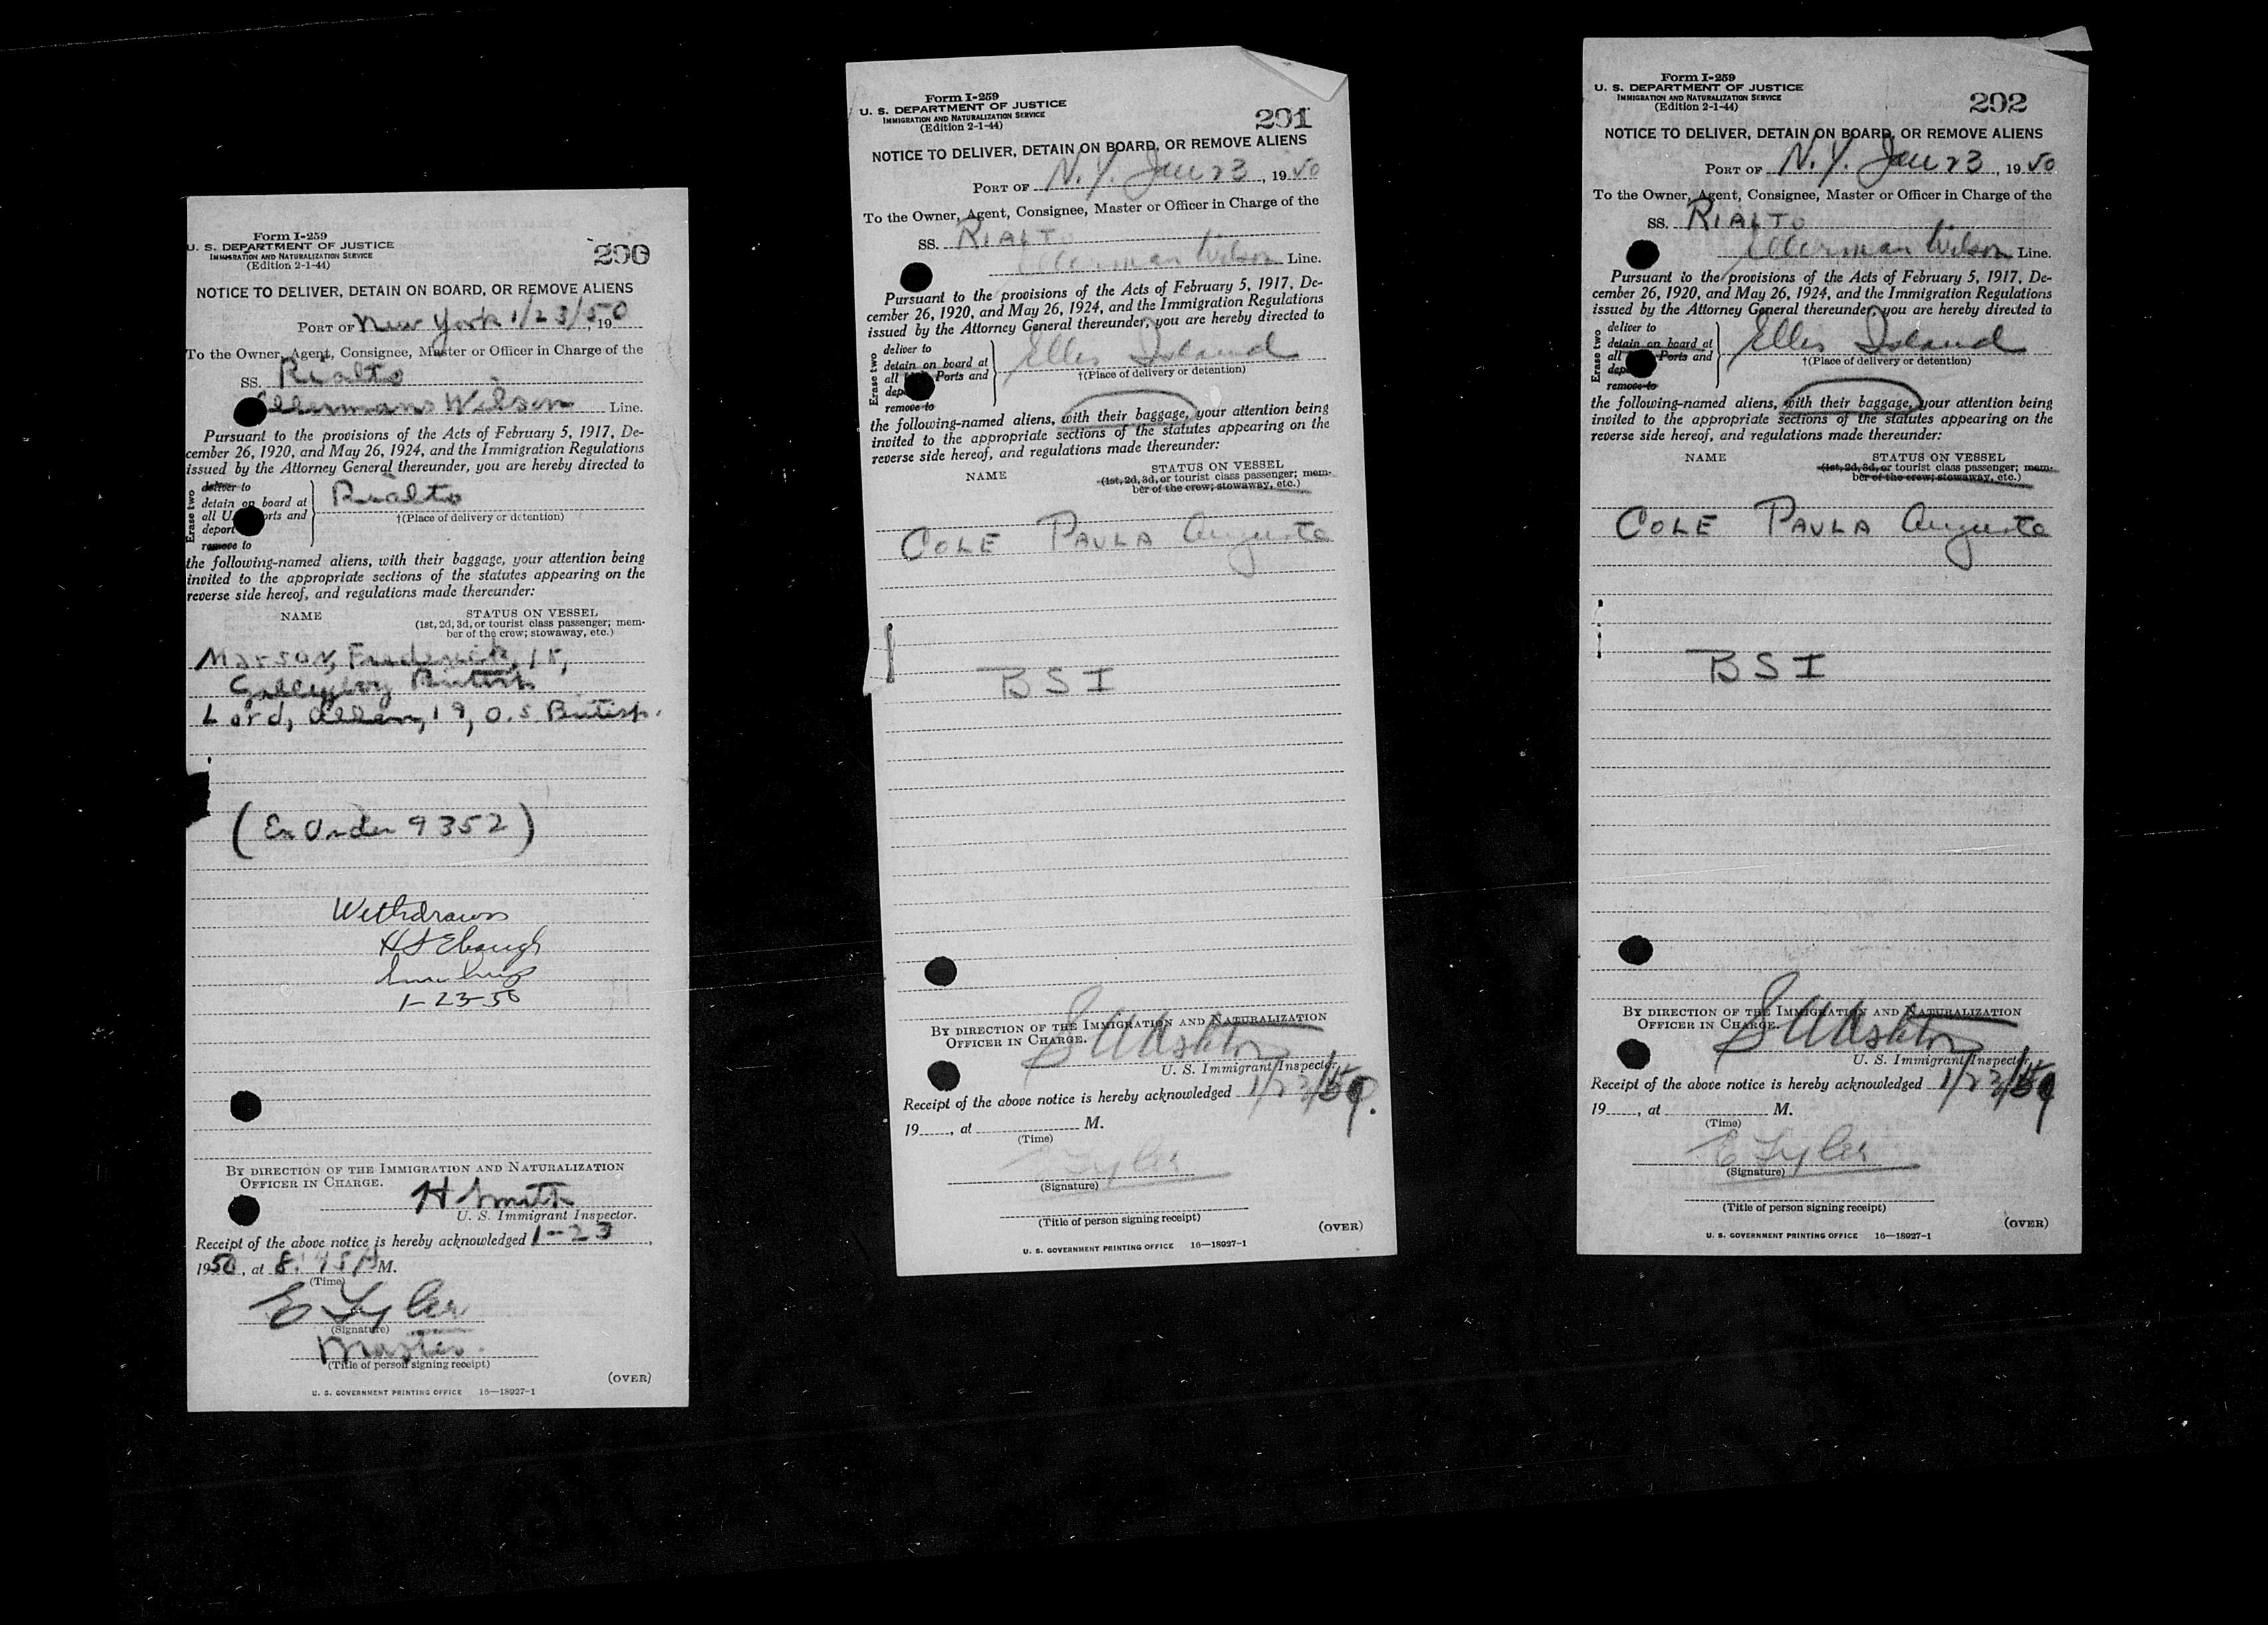 Form I-259
U. S. DEPARTMENT OF JUSTICE
IMMIGRATION AND NATURALIZATION SERVICE
(Edition 2-1-44)
290
NOTICE TO DELIVER, DETAIN ON BOARD, OR REMOVE ALIENS
PORT OF New York 1/23/50, 19
To the Owner, Agent, Consignee, Master or Officer in Charge of the
SS. Rialto
Ellermans Wilson Line.
Pursuant to the provisions of the Acts of February 5, 1917, De-
cember 26, 1920, and May 26, 1924, and the Immigration Regulations
issued by the Attorney General thereunder, you are hereby directed to
Erase two
deliver to
detain on board at
all U. Ports and
deport
remove to
Rialto
†(Place of delivery or detention)
the following-named aliens, with their baggage, your attention being
invited to the appropriate sections of the statutes appearing on the
reverse side hereof, and regulations made thereunder:
NAME STATUS ON VESSEL
(1st, 2d, 3d, or tourist class passenger; mem-
ber of the crew; stowaway, etc.)
Frederick, 15,
Galleyboy British
Lord, Allen, 19, O.S. British.
(Ex Order 9352)
Withdrawn
1-23-50
BY DIRECTION OF THE IMMIGRATION AND NATURALIZATION
OFFICER IN CHARGE.
H Smith
U. S. Immigrant Inspector.
Receipt of the above notice is hereby acknowledged 1-23,
1950, at 8:45 A M.
(Time)
E Tyler
(Signature)
Master.
(Title of person signing receipt)
(OVER)
U. S. GOVERNMENT PRINTING OFFICE 16—18927-1
Form I-259
U. S. DEPARTMENT OF JUSTICE
IMMIGRATION AND NATURALIZATION SERVICE
(Edition 2-1-44)
291
NOTICE TO DELIVER, DETAIN ON BOARD, OR REMOVE ALIENS
PORT OF N.Y. Jan 23, 1950
To the Owner, Agent, Consignee, Master or Officer in Charge of the
SS. RIALTO
Ellerman Wilson Line.
Pursuant to the provisions of the Acts of February 5, 1917, De-
cember 26, 1920, and May 26, 1924, and the Immigration Regulations
issued by the Attorney General thereunder, you are hereby directed to
Erase two
deliver to
detain on board at
all Ports and
deport
remove to
Ellis Island
†(Place of delivery or detention)
the following-named aliens, with their baggage, your attention being
invited to the appropriate sections of the statutes appearing on the
reverse side hereof, and regulations made thereunder:
NAME STATUS ON VESSEL
(1st, 2d, 3d, or tourist class passenger; mem-
ber of the crew; stowaway, etc.)
COLE PAULA Auguste
BSI
BY DIRECTION OF THE IMMIGRATION AND NATURALIZATION
OFFICER IN CHARGE.
U. S. Immigrant Inspector.
Receipt of the above notice is hereby acknowledged 1/23/50
19, at M.
(Time)
E Tyler
(Signature)
(Title of person signing receipt)
(OVER)
U. S. GOVERNMENT PRINTING OFFICE 16—18927-1
Form I-259
U. S. DEPARTMENT OF JUSTICE
IMMIGRATION AND NATURALIZATION SERVICE
(Edition 2-1-44)
292
NOTICE TO DELIVER, DETAIN ON BOARD, OR REMOVE ALIENS
PORT OF N.Y. Jan 23, 1950
To the Owner, Agent, Consignee, Master or Officer in Charge of the
SS. RIALTO
Ellerman Wilson Line.
Pursuant to the provisions of the Acts of February 5, 1917, De-
cember 26, 1920, and May 26, 1924, and the Immigration Regulations
issued by the Attorney General thereunder, you are hereby directed to
Erase two
deliver to
detain on board at
all Ports and
deport
remove to
Ellis Island
†(Place of delivery or detention)
the following-named aliens, with their baggage, your attention being
invited to the appropriate sections of the statutes appearing on the
reverse side hereof, and regulations made thereunder:
NAME STATUS ON VESSEL
(1st, 2d, 3d, or tourist class passenger; mem-
ber of the crew; stowaway, etc.)
COLE PAULA Auguste
BSI
BY DIRECTION OF THE IMMIGRATION AND NATURALIZATION
OFFICER IN CHARGE.
U. S. Immigrant Inspector
Receipt of the above notice is hereby acknowledged 1/23/50
19, at M.
(Time)
E Tyler
(Signature)
(Title of person signing receipt)
(OVER)
U. S. GOVERNMENT PRINTING OFFICE 16—18927-1